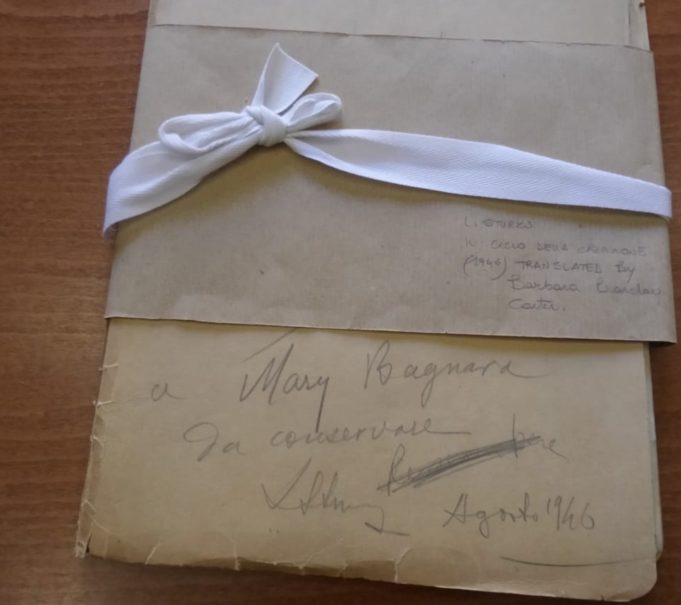 L. STURZO
IL CICLO DELLA CREAZIONE
(1946) TRANSLATED By
Barbara Barclay
Carter.
a Mary Bagnara
da conservare
LSturzo Agosto 1946